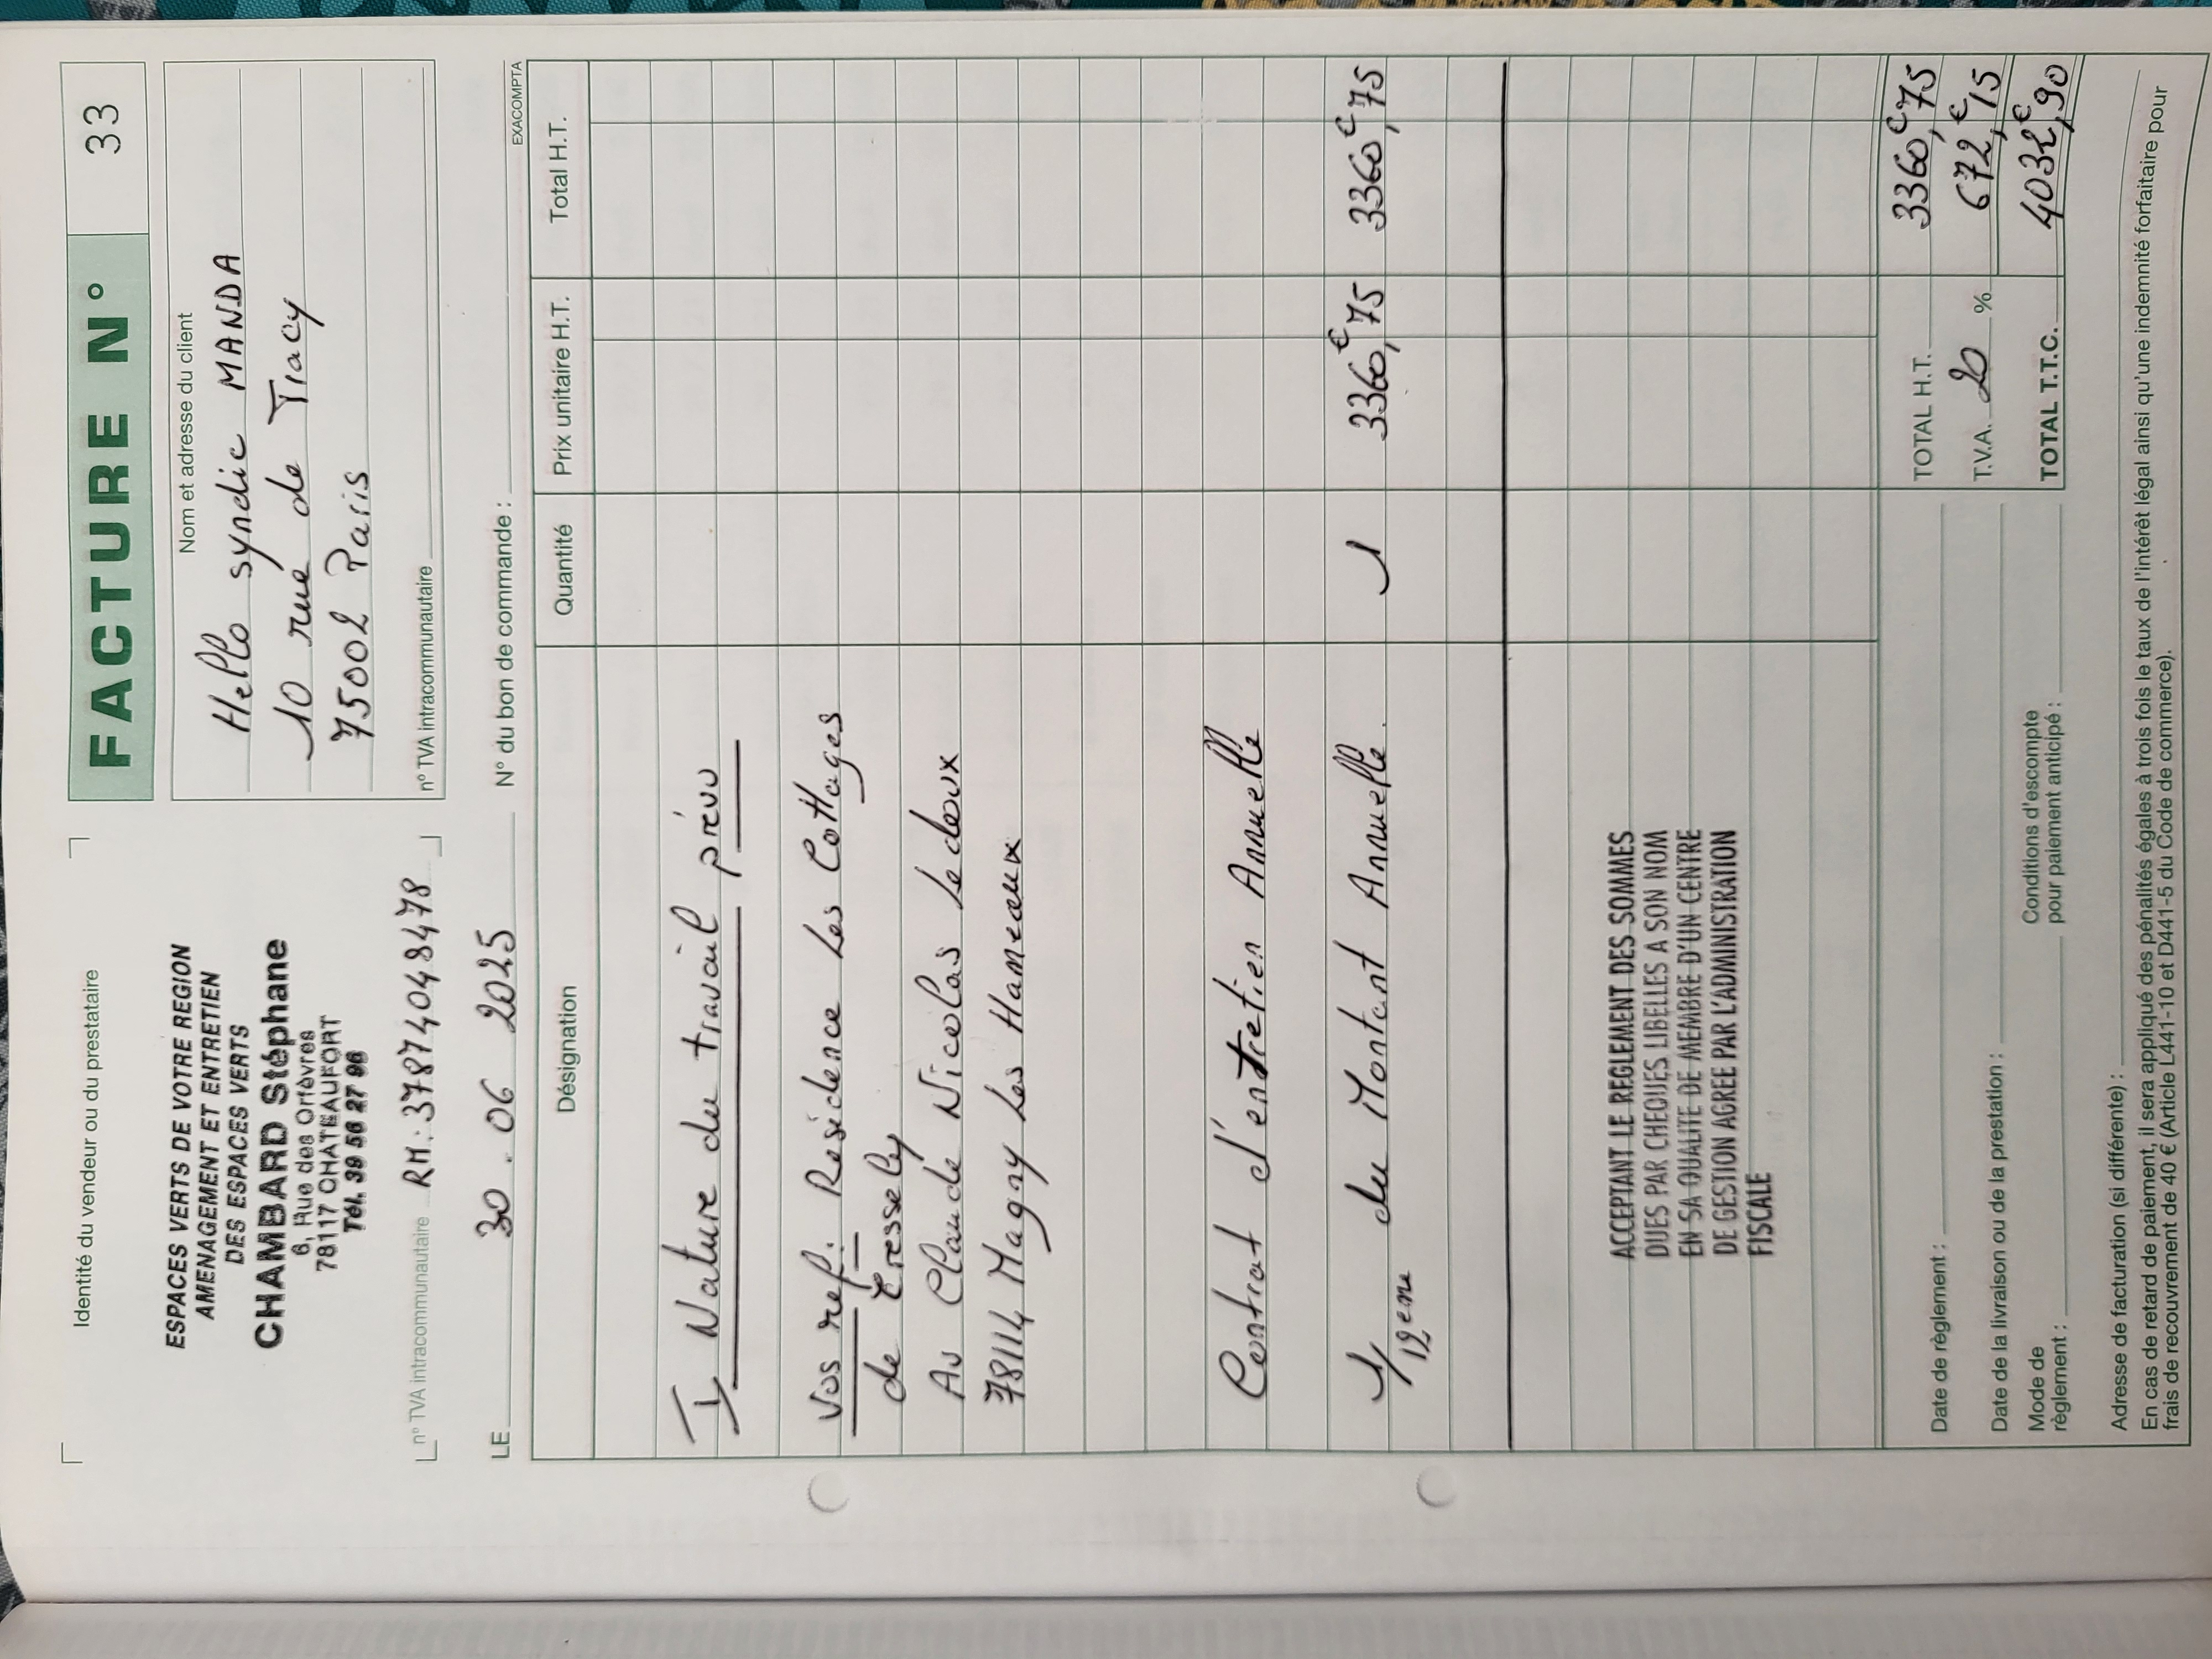 Identité du vendeur ou du prestataire
FACTURE N° 33
ESPACES VERTS DE VOTRE REGION
AMENAGEMENT ET ENTRETIEN
DES ESPACES VERTS
CHAMBARD Stéphane
6, Rue des Orfèvres
78117 CHATEAUFORT
Tél. 39 56 27 96
n° TVA intracommunautaire RM: 37874048478
Nom et adresse du client
Hello syndic MANDA
10 rue de Tracy
75002 Paris
n° TVA intracommunautaire
LE 30.06 2025 N° du bon de commande :
EXACOMPTA
Désignation Quantité Prix unitaire H.T. Total H.T.
I) Nature du travail prévu
Vos ref: Residence Les Cottages
de Cressely
Av Claude Nicolas Ledoux
78114 Magny Les Hameaux
Contrat d'entretien Annuelle
1/12eme du Montant Annuelle. 1 3360€,75 3360€,75
ACCEPTANT LE REGLEMENT DES SOMMES
DUES PAR CHEQUES LIBELLES A SON NOM
EN SA QUALITE DE MEMBRE D'UN CENTRE
DE GESTION AGREE PAR L'ADMINISTRATION
FISCALE
Date de règlement : TOTAL H.T. 3360€,75
Date de la livraison ou de la prestation : T.V.A. 20 % 672,€15
Mode de règlement : Conditions d'escompte pour paiement anticipé : TOTAL T.T.C. 4032€,90
Adresse de facturation (si différente) :
En cas de retard de paiement, il sera appliqué des pénalités égales à trois fois le taux de l'intérêt légal ainsi qu'une indemnité forfaitaire pour
frais de recouvrement de 40 € (Article L441-10 et D441-5 du Code de commerce).